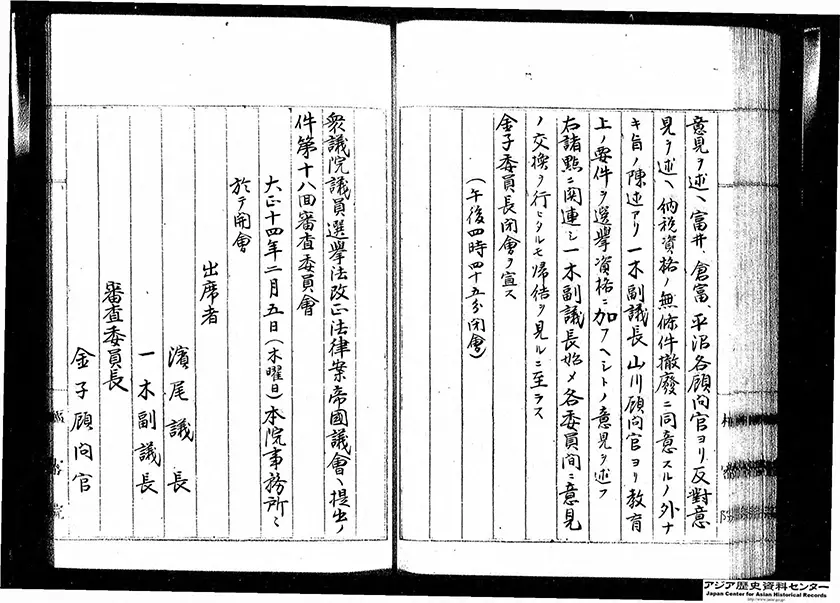 意見ヲ述ヘ富井、倉富、平沼各顧問官ヨリ反對意
見ヲ述ヘ納税資格ノ無條件撤廢ニ同意スルノ外ナ
キ旨ノ陳述アリ一木副議長山川顧問官ヨリ教育
上ノ要件ヲ選擧資格ニ加フヘシトノ意見ヲ述フ
右諸點ニ関連シ一木副議長始メ各委員間ニ意見
ノ交換ヲ行ヒタルモ帰結ヲ見ルニ至ラス
金子委員長閉會ヲ宣ス
（午後四時四十五分閉會）
衆議院議員選擧法改正法律案帝國議會ヘ提出ノ
件第十八回審査委員會
大正十四年二月五日（木曜日）本院事務所ニ
於テ開會
出席者
濱尾議長
一木副議長
審査委員長
金子顧問官
樞密院
アジア歴史資料センター
Japan Center for Asian Historical Records